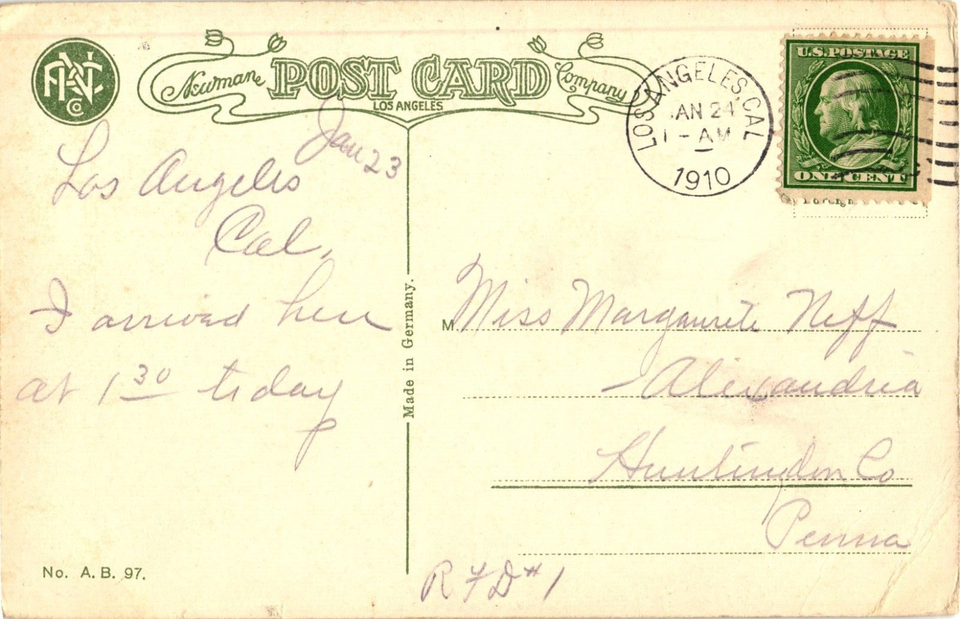 ANN Co
Newman POST CARD Company
LOS ANGELES
LOS ANGELES, CAL
JAN 24
1 - AM
1910
U.S. POSTAGE
ONE CENT
Jan 23
Los Angeles
Cal.
I arrived here
at 1 30 today
Made in Germany.
M
Miss Margaurite Neff
Alexandria
Huntingdon Co
Penna
R F D #1
No. A. B. 97.